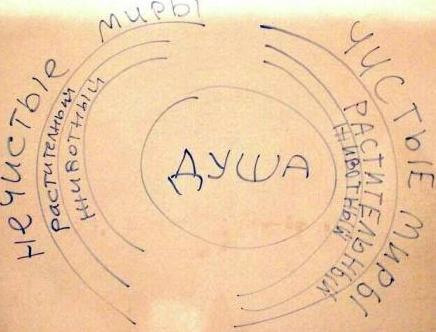 нечистые миры
растительный
животный
ДУША
ЧИСТЫЕ МИРЫ
РАСТИТЕЛЬНЫЙ
ЖИВОТНЫЙ